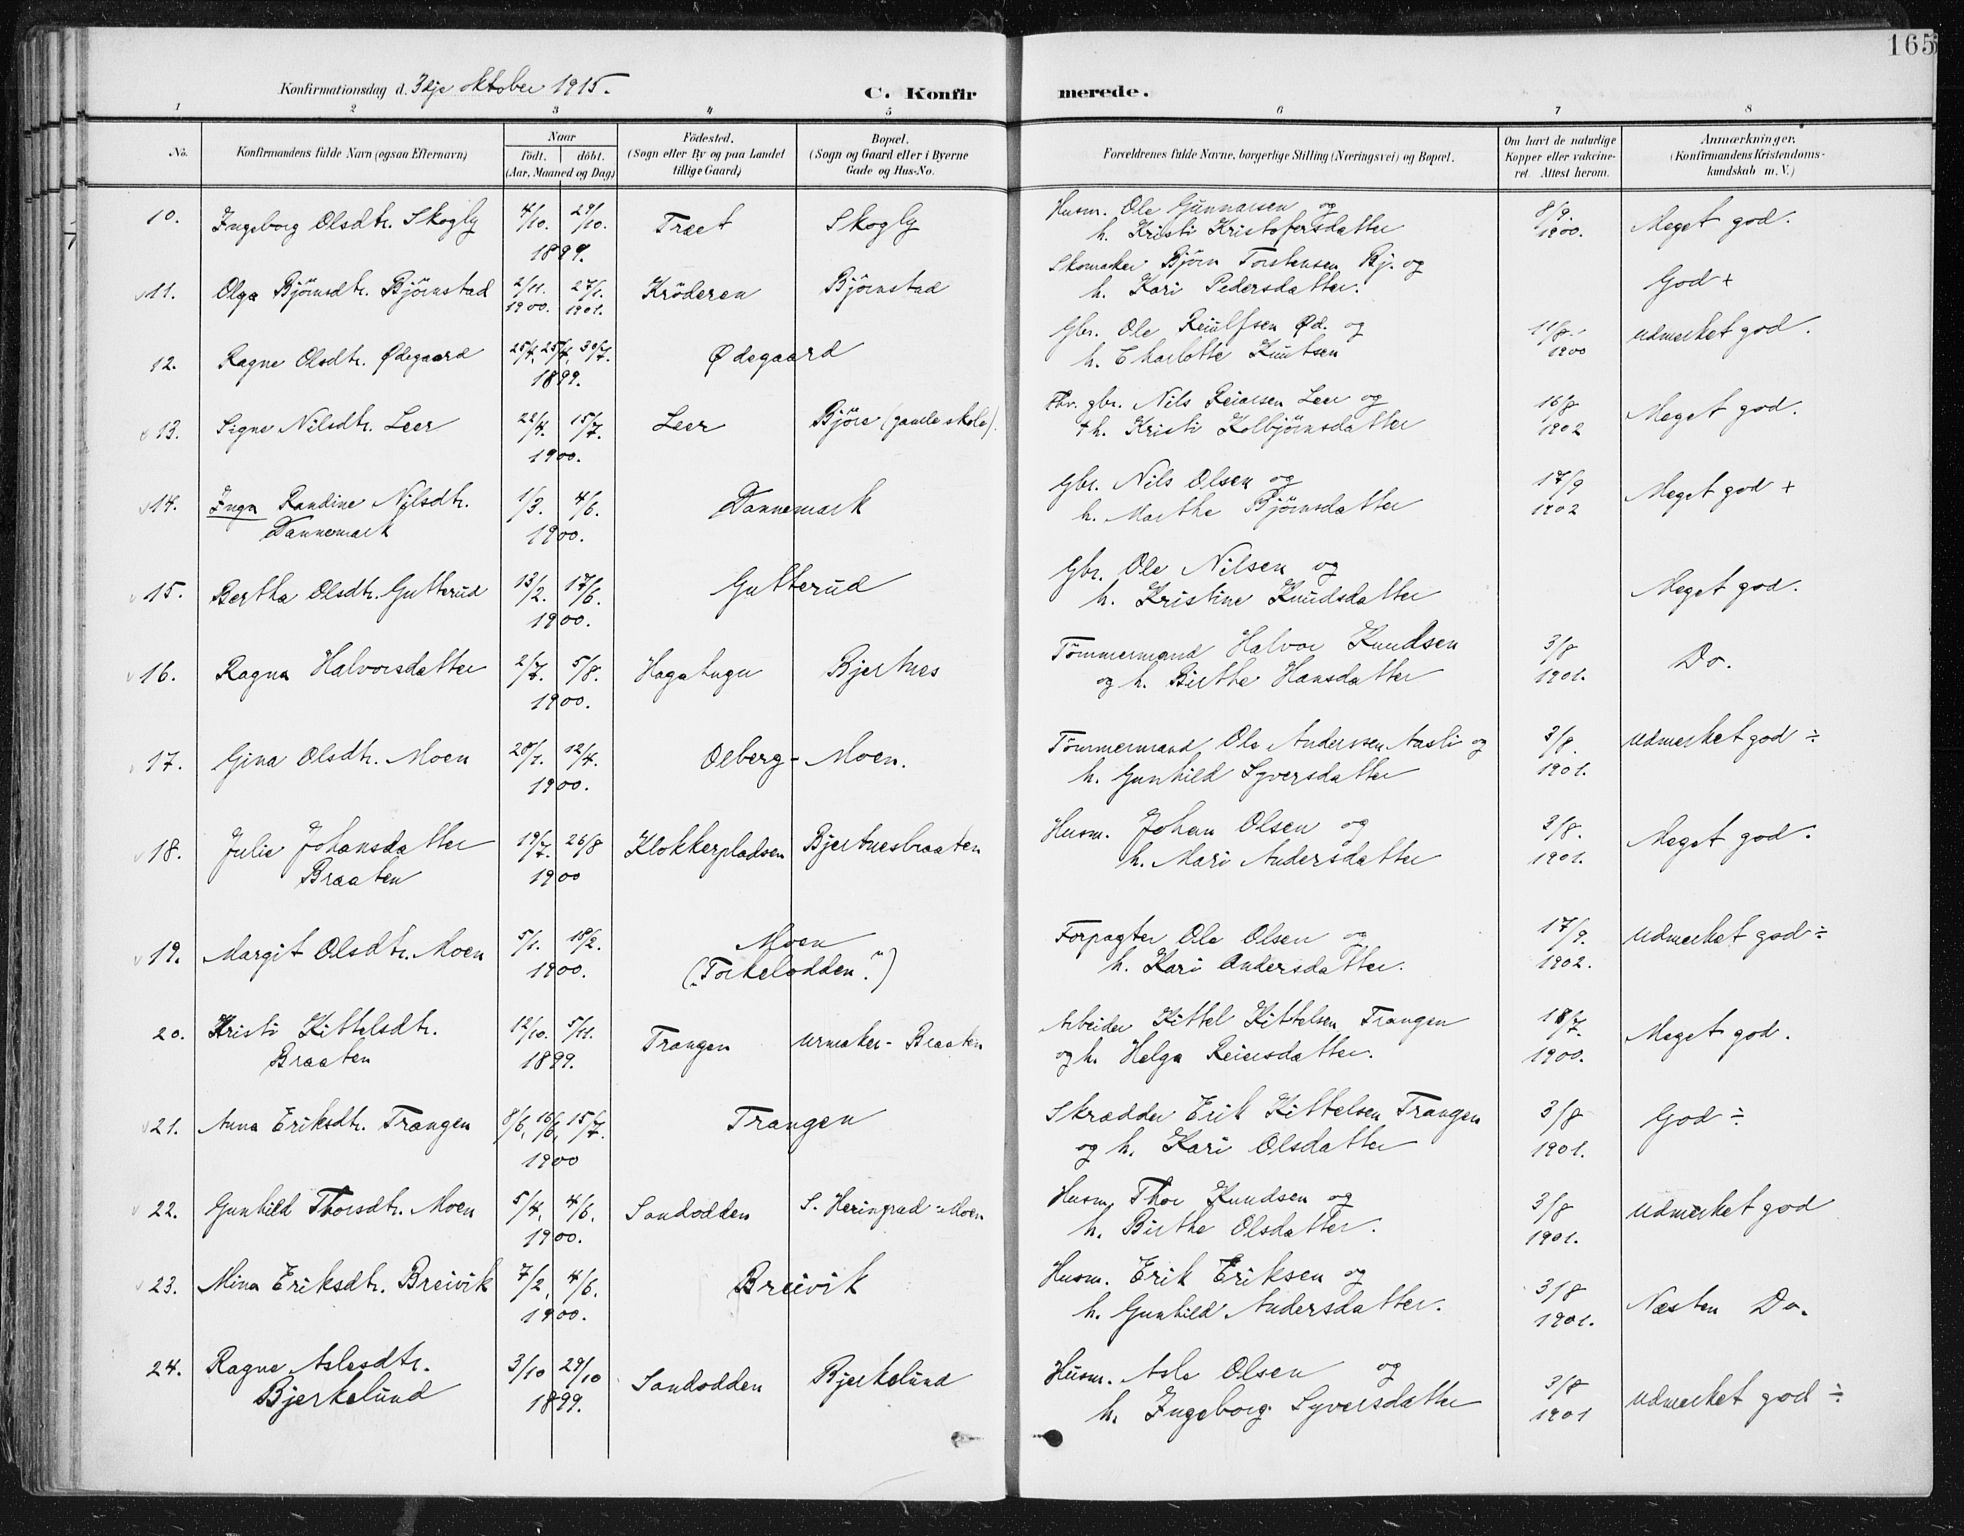 165
Konfirmationsdag d. 3dje oktober 1915.
C. Konfirmerede.
1 2 3 4 5 6 7 8
No.
Konfirmandens fulde Navn (ogsaa Efternavn)
Naar
födt. döbt.
(Aar, Maaned og Dag)
Födested.
(Sogn eller By og paa Landet
tillige Gaard)
Bopæl.
(Sogn og Gaard eller i Byerne
Gade og Hus-No.
Forældrenes fulde Navne, borgerlige Stilling (Næringsvei) og Bopæl.
Om havt de naturlige
Kopper eller vakcine-
ret. Attest herom.
Anmærkninger.
(Konfirmandens Kristendoms-
kundskab m. V.)
10. Ingeborg Olsdtr. Skogly 4/10. 29/10. 1899. Træet Skogly Husm. Ole Gunnarsen og
h. Kristi Kristofersdatter 8/9. 1900. Meget god.
11. Olga Björnsdtr. Björnstad 2/11. 1900. 27/1. 1901. Kröderen Björnstad Skomaker Björn Torstensen Bj. og
h. Kari Pedersdatter. God +
12. Ragne Olsdtr. Ødegaard 25/4, 25/4, 30/7. 1899. Ødegaard Gbr. Ole Reiulfsen Ød. og
h. Charlotte Knutsen 11/8. 1900 udmerket god.
13. Signe Nilsdtr. Leer 22/4. 15/7. 1900. Leer Björe (gamle skole). Fhv. gbr. Nils Reiarsen Leer og
h. Kristi Kolbjörnsdatter 16/8 1902 Meget god.
14. Inga Randine Nilsdtr.
Dannemark 1/3. 4/6. 1900. Dannemark Gbr. Nils Olsen og
h. Marthe Björnsdatter 17/9 1902 Meget god +
15. Bertha Olsdtr. Gutterud 13/2. 17/6. 1900. Gutterud Gbr. Ole Nilsen og
h. Kristine Knudsdatter Meget god.
16. Ragna Halvorsdatter 2/7. 5/8. 1900. Hagatugu Bjertnes Tömmermand Halvor Knudsen
og h. Birthe Hansdatter 3/8 1901. Do.
17. Gina Olsdtr. Moen 28/1. 12/4. 1900. Olberg- Moen. Tömmermand Ole Anderssen Aasli og
h. Gunhild Syversdatter 3/8. 1901. udmerket god ÷
18. Julie Johansdatter
Braaten 19/7. 26/8 1900 Klokkerpladsen Bjertnesbraaten Husm. Johan Olsen og
h. Mari Andersdatter 3/8. 1901. Meget god.
19. Margit Olsdtr. Moen 5/1. 18/2. 1900. Moen
("Torkelodden.") Forpagter Ole Olsen og
h. Kari Andersdatter. 17/9. 1902. udmerket god ÷
20. Kristi Kittelsdtr.
Braaten 12/10. 5/11. 1899. Trangen urmaker- Braaten Arbeider Kittel Kittelsen Trangen
og h. Helga Reiersdatter. 18/7. 1900. Meget god.
21. Anna Eriksdtr. Trangen 8/6, 16/6, 15/7. 1900 Trangen Skrædder Erik Kittelsen Trangen
og h. Kari Olsdatter 3/8 1901. God ÷
22. Gunhild Thorsdtr. Moen 5/4, 4/6. 1900. Sandodden S. -Moen Husm. Thor Knudsen og
h. Birthe Olsdatter. 3/8 1901. udmerket god
23. Mina Eriksdtr. Breivik 7/2, 4/6. 1900. Breivik Husm. Erik Eriksen og
h. Gunhild Andersdatter. 3/8 1901. Næsten Do.
24. Ragne Aslesdtr.
Bjerkelund 3/10 29/10 1899. Sandodden Bjerkelund Husm. Asle Olsen og
h. Ingeborg Syversdatter 3/8 1901 udmerket god ÷